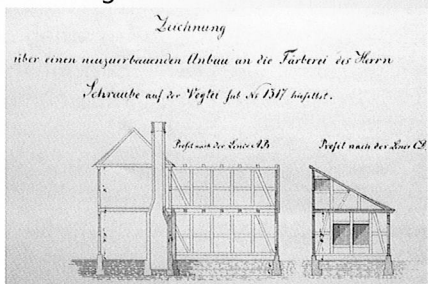 Zeichnung
über einen neuzuerbauenden Anbau an die Färberei des Herrn
Schraube auf der Vogtei sub № 1317 hieselbst.
Profil nach der Linie A.B
Profil nach der Linie C.D.